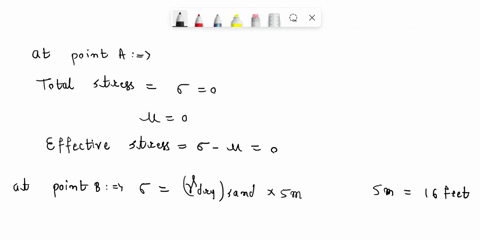 at point A :=>
Total stress = σ = 0
u = 0
Effective stress = σ - u = 0
at point B :=> σ = (γdry)sand × 5m 5m = 16 feet